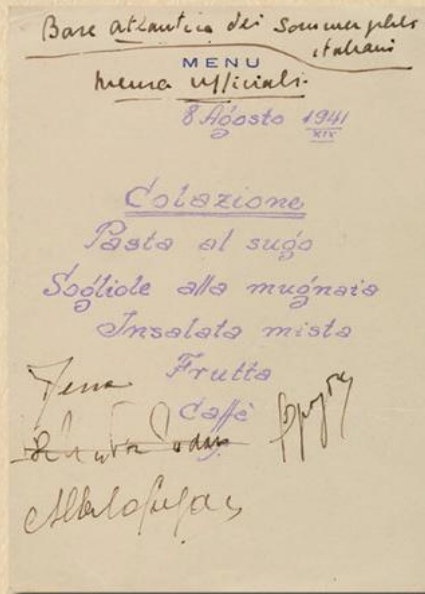 Base atlantica dei Sommergibili
italiani
MENU
Mensa ufficiali.
8 Agosto 1941
XIX
Colazione
Pasta al sugo
Sogliole alla mugnaia
Insalata mista
Frutta
Caffè